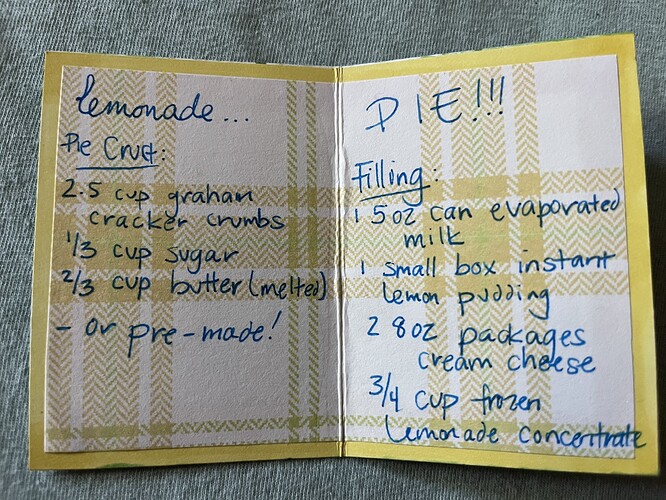 lemonade...
Pie Crust:
2.5 cup graham
cracker crumbs
1/3 cup sugar
2/3 cup butter (melted)
- or pre-made!
PIE!!!
Filling:
1 5oz can evaporated
milk
1 small box instant
lemon pudding
2 8oz packages
cream cheese
3/4 cup frozen
lemonade concentrate